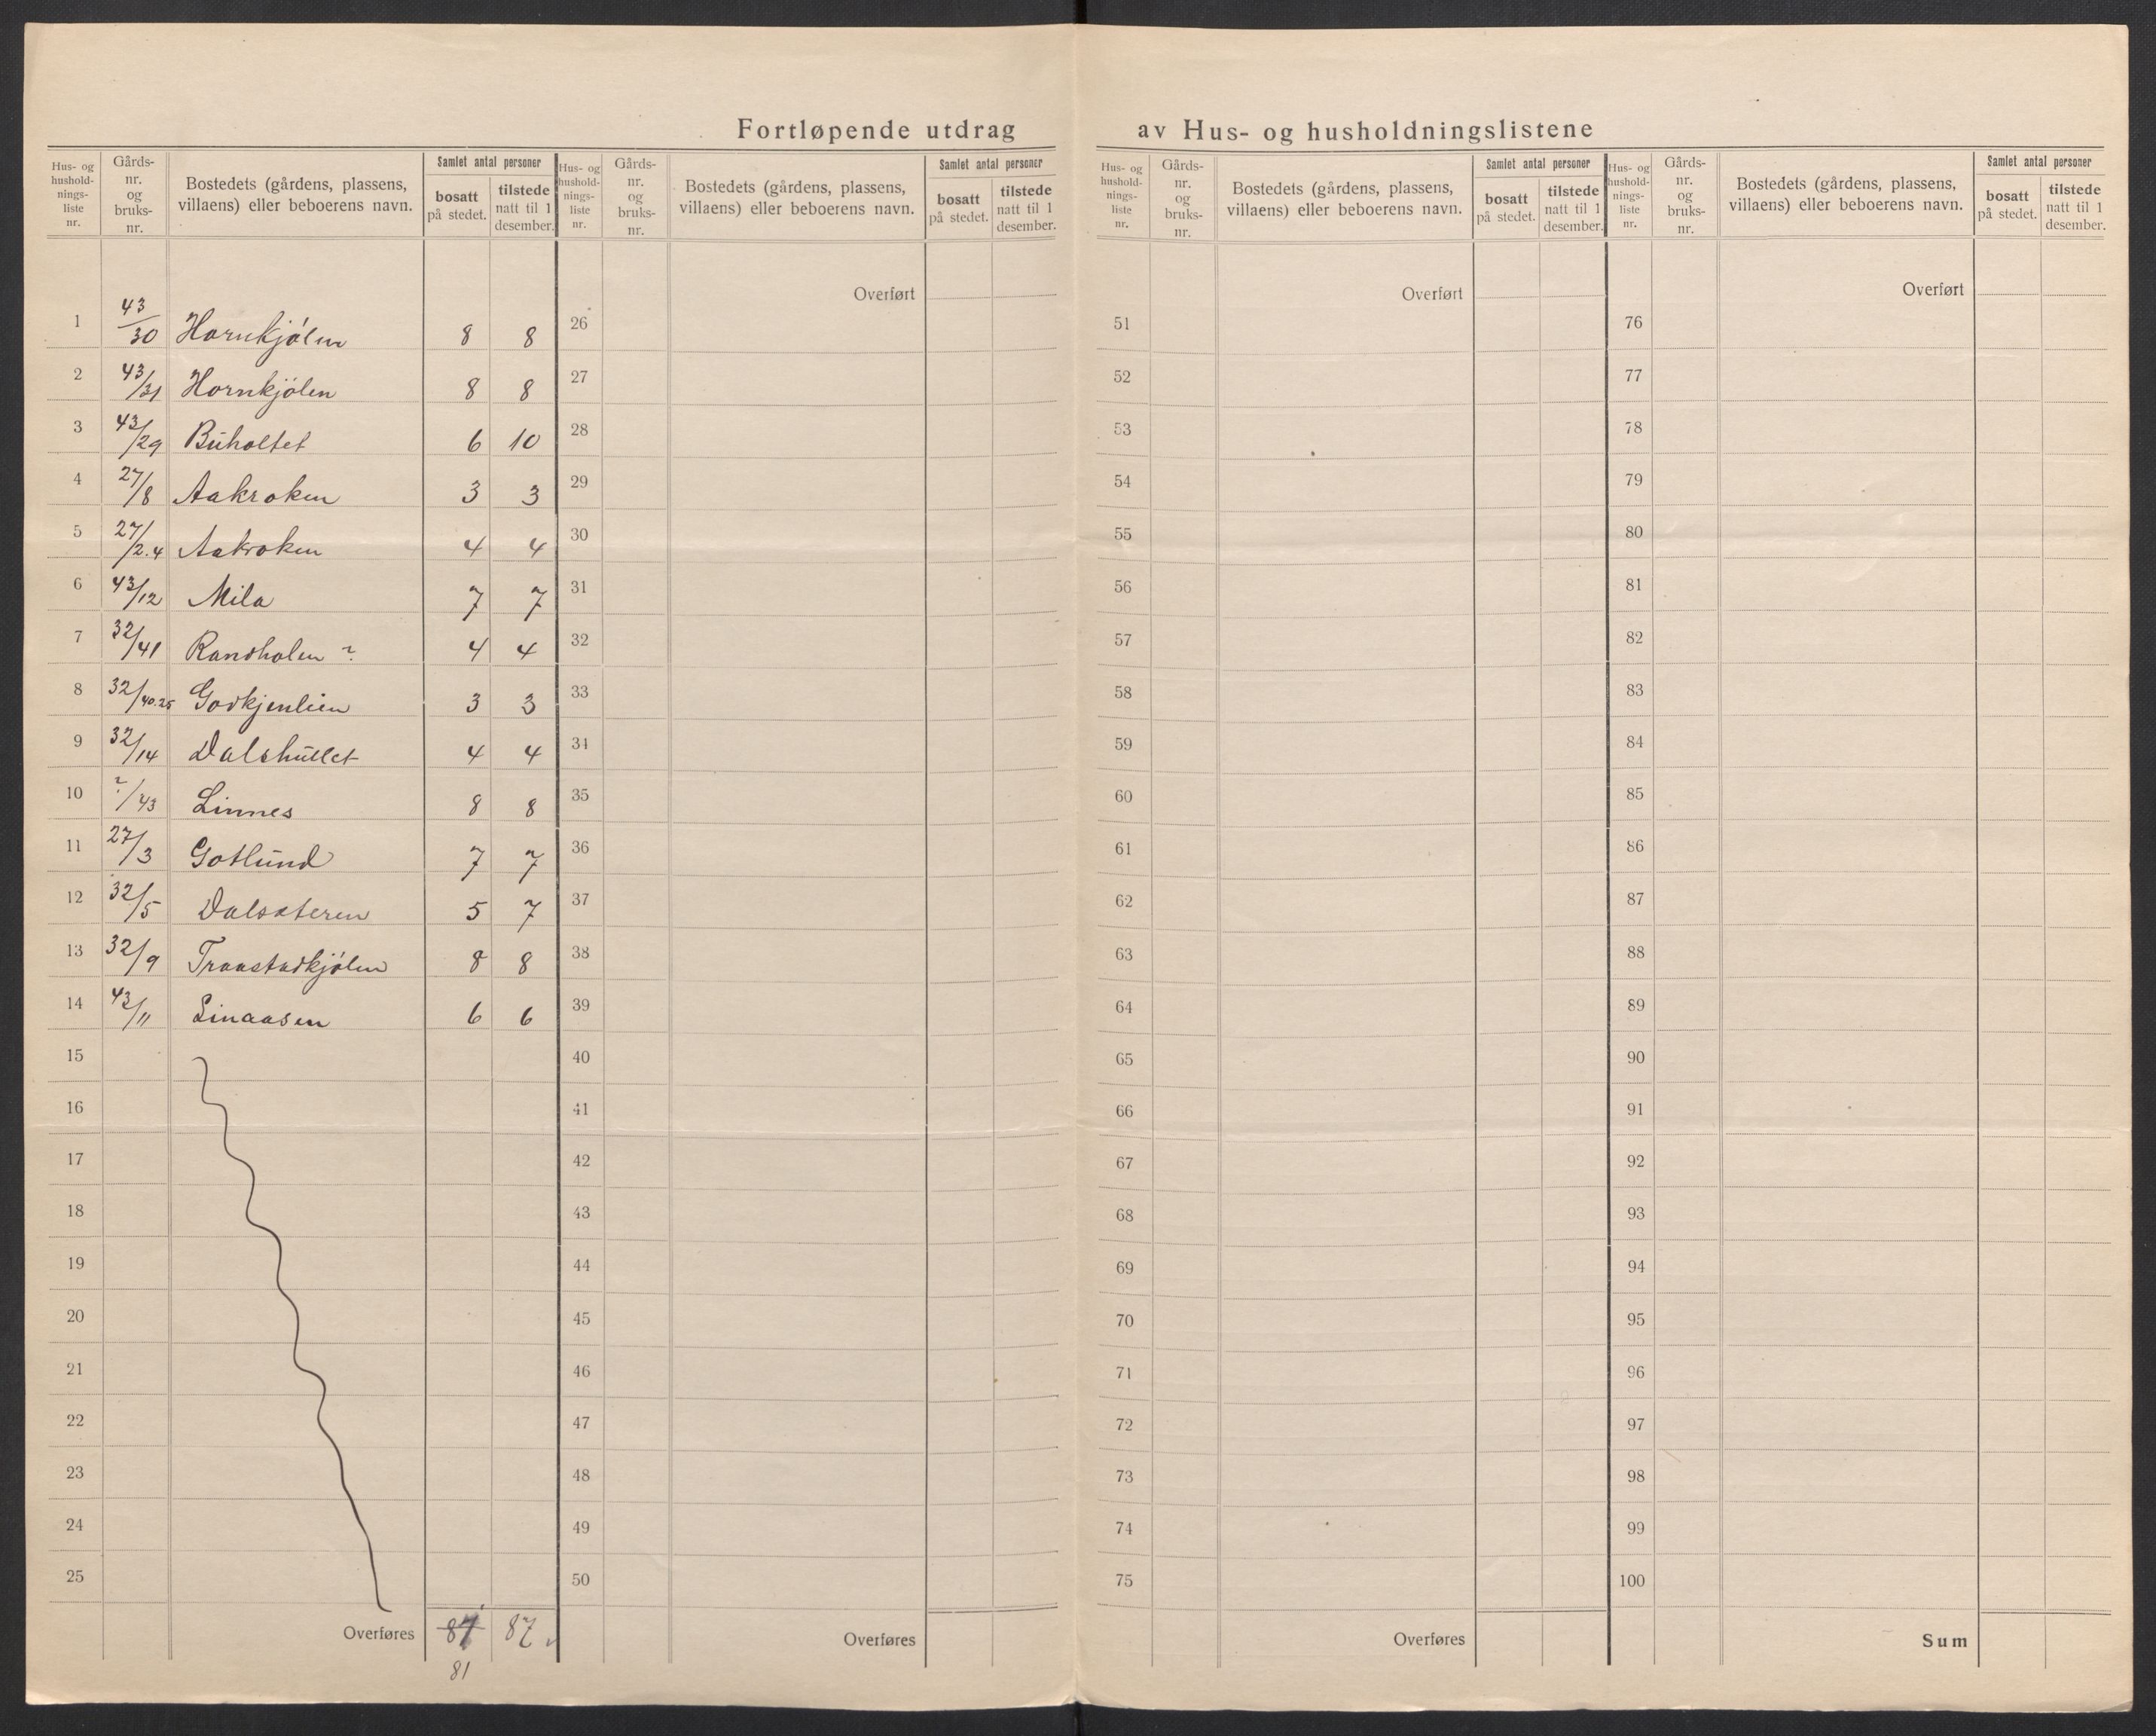 Fortløpende utdrag av Hus- og husholdningslistene
Hus- og hushold- nings- liste nr. | Gårds- nr. og bruks- nr. | Bostedets (gårdens, plassens, villaens) eller beboerens navn. | Samlet antal personer | bosatt på stedet. | tilstede natt til 1 desember.
Hus- og hushold- nings- liste nr. | Gårds- nr. og bruks- nr. | Bostedets (gårdens, plassens, villaens) eller beboerens navn. | Samlet antal personer | bosatt på stedet. | tilstede natt til 1 desember.
Hus- og hushold- nings- liste nr. | Gårds- nr. og bruks- nr. | Bostedets (gårdens, plassens, villaens) eller beboerens navn. | Samlet antal personer | bosatt på stedet. | tilstede natt til 1 desember.
Hus- og hushold- nings- liste nr. | Gårds- nr. og bruks- nr. | Bostedets (gårdens, plassens, villaens) eller beboerens navn. | Samlet antal personer | bosatt på stedet. | tilstede natt til 1 desember.
1 43/30 Hornkjölen 8 8
2 43/31 Hornkjölen 8 8
3 43/29 Buholtet 6 10
4 27/8 Aakroken 3 3
5 27/2.4 Aakroken 4 4
6 43/12 Mila 7 7
7 32/41 Randholen ? 4 4
8 32/40.25 Godkjenlien 3 3
9 32/14 Dalshullet 4 4
10 ?/43 Linnes 8 8
11 27/3 Gotlund 7 7
12 32/5 Dalsæteren 5 7
13 32/9 Traastadkjölen 8 8
14 43/11 Linaasen 6 6
15
16
17
18
19
20
21
22
23
24
25
Overføres 87 87
81
Overført
26
27
28
29
30
31
32
33
34
35
36
37
38
39
40
41
42
43
44
45
46
47
48
49
50
Overføres
Overført
51
52
53
54
55
56
57
58
59
60
61
62
63
64
65
66
67
68
69
70
71
72
73
74
75
Overføres
Overført
76
77
78
79
80
81
82
83
84
85
86
87
88
89
90
91
92
93
94
95
96
97
98
99
100
Sum